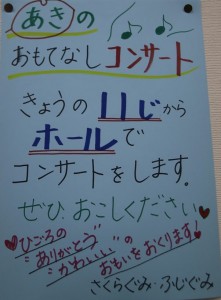 あきの
おもてなしコンサート
きょうの11じから
ホールで
コンサートをします。
ぜひ おこしください
ひごろの
"ありがとう"
"かわいい"の
おもいをおくります!
さくらぐみ・ふじぐみ